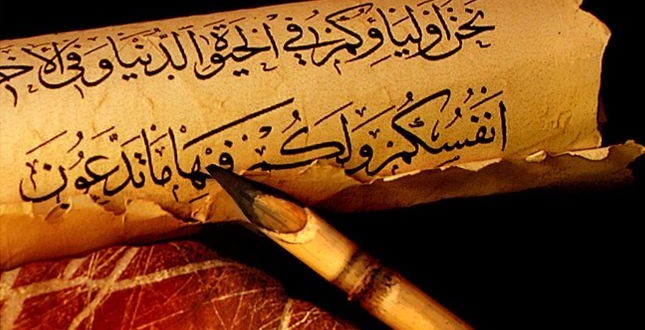 نَحْنُ اَوْلِيَاؤُكُمْ فِي الْحَيٰوةِ الدُّنْيَا وَفِي الْاٰخ
اَنْفُسُكُمْ وَلَكُمْ فِيْهَا مَا تَدَّعُوْنَ